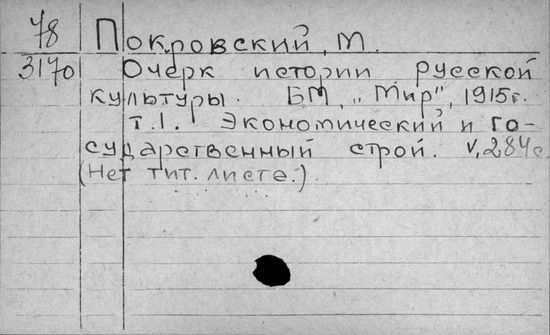 78 Покровский, М.
3170 Очерк истории русской
культуры. БМ, "Мир", 1915г.
т.I. Экономический и го-
сударственный строй. V, 284с
(Нет тит. листа.).